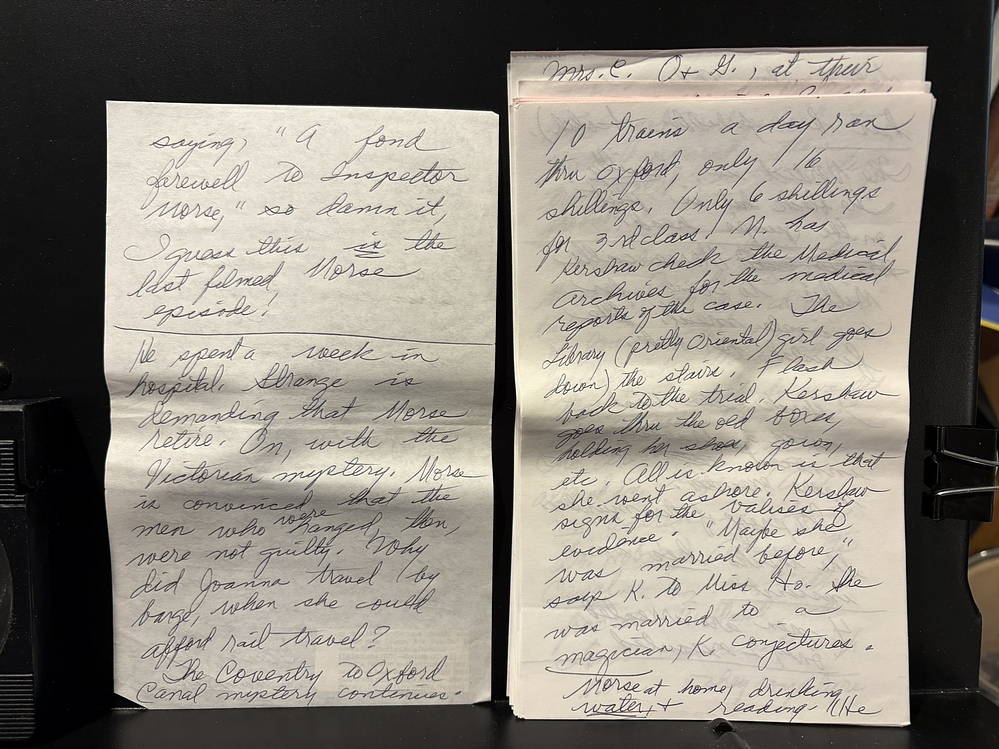 saying, "A fond
farewell to Inspector
Morse," so damn it,
I guess this is the
last filmed Morse
episode!
He spent a week in
hospital. Strange is
demanding that Morse
retire. On, with the
Victorian mystery. Morse
is convinced that the
men who were hanged, then,
were not guilty. Why
did Joanna travel by
barge, when she could
afford rail travel?
The Coventry to Oxford
Canal mystery continues.
Mrs. C. O + G., at their
10 trains a day ran
thru Oxford, only 16
shillings. Only 6 shillings
for 3rd class. M. has
Kershaw check the Medical
Archives for the medical
reports of the case. The
Library (pretty Oriental) girl goes
down) the stairs. Flash
back to the trial. Kershaw
goes thru the old boxes,
holding her shoes, gown,
etc. All is known is that
she went ashore. Kershaw
signs for the valises of
evidence. "Maybe she
was married before,"
says K. to Miss Ho. She
was married to a
magician, K. conjectures.
Morse at home, drinking
water, + reading. "He